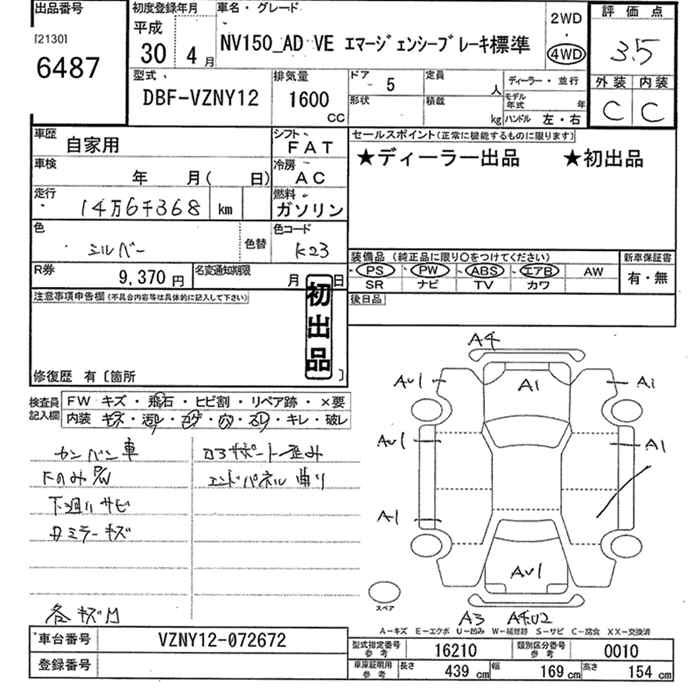 出品番号
[2130]
6487
初度登録年月
平成
30年 4月
車名・グレード
NV150_AD VE エマージェンシーブレーキ標準
2WD
・
4WD
評価点
3.5
外装 内装
C C
型式
DBF-VZNY12
排気量
1600
CC
ドア 5
定員 人
ディーラー・並行
形状
積載 kg
モデル年式 年
ハンドル 左・右
車歴 自家用
シフト FAT
車検 年 月( 日)
冷房 AC
走行 14万6千368 km
燃料 ガソリン
色 シルバー
色替
色コード K23
R券 9,370円
名変通知期限 月 日
セールスポイント(正常に機能するものに限ります)
★ディーラー出品 ★初出品
装備品 (純正品に限り○をつけてください)
PS PW ABS エアB AW
SR ナビ TV カワ
新車保証書
有・無
後日品
注意事項申告欄(不具合内容等は具体的に記入して下さい)
初出品
修復歴 有〔箇所 〕
検査員記入欄
FW キズ・飛石・ヒビ割・リペア跡・×要
内装 キズ・・・・・キレ・破レ
カンバン車
下廻りサビ
ミラーキズ
コアサポート歪み
エンドパネル曲り
各キズ凹
A4
AU1
A1
A1
AU1
A1
A1
AU1
A3
スペア
A-キズ E-エクボ U-凹み W-補修跡 S-サビ C-腐食 XX-交換済
車台番号 VZNY12-072672
登録番号
型式指定番号 参考 16210
類別区分番号 参考 0010
車庫証明用 参考 長さ 439 cm 幅 169 cm 高さ 154 cm